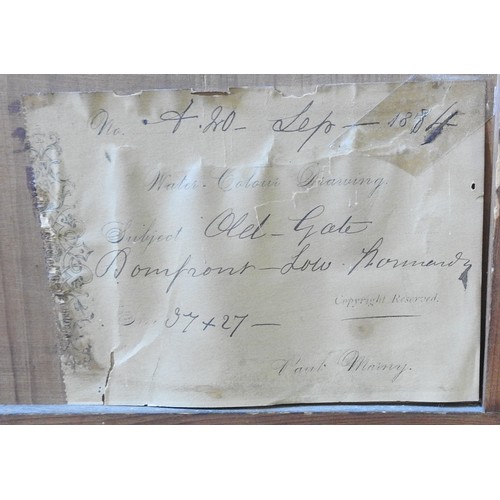 No. A. 20 - Sep - 1884
Water-Colour Drawing.
Subject Old - Gate
Domfront - Low. Normandy
Copyright Reserved.
37 + 27 -
Paul Marny.